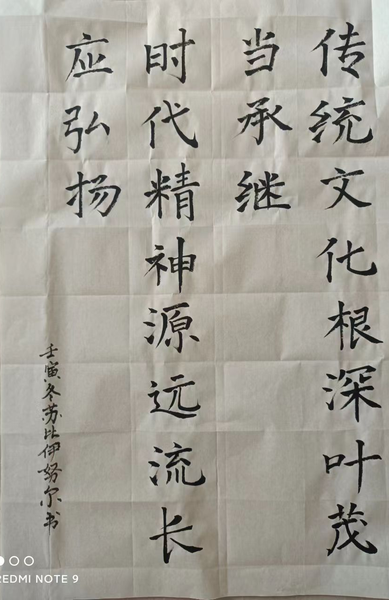 传统文化根深叶茂
当承继
时代精神源远流长
应弘扬
壬寅冬苏比伊努尔书
REDMI NOTE 9